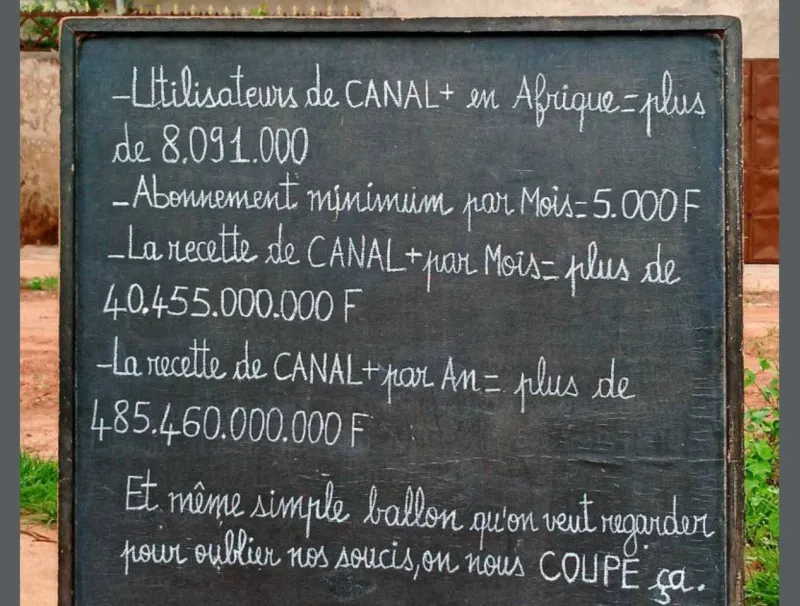 -Utilisateurs de CANAL+ en Afrique=plus
de 8.091.000
-Abonnement minimum par Mois=5.000F
-La recette de CANAL+par Mois=plus de
40.455.000.000 F
-La recette de CANAL+par An= plus de
485.460.000.000 F
Et même simple ballon qu'on veut regarder
pour oublier nos soucis,on nous COUPE ça.